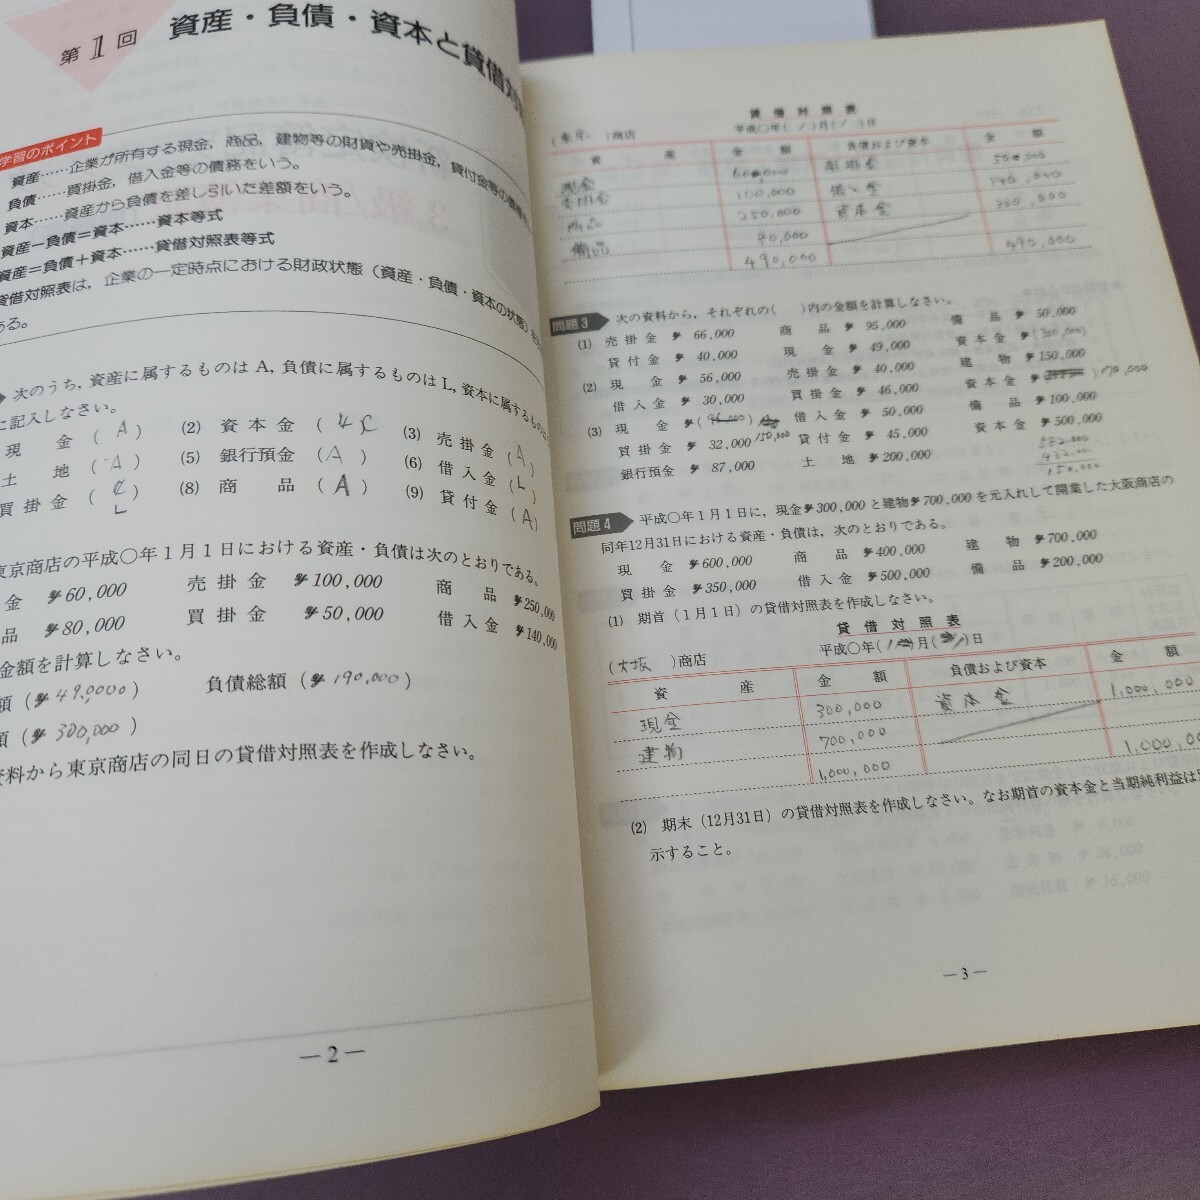 第1回 資産・負債・資本と貸借対
学習のポイント
資産……企業が所有する現金，商品，建物等の財貨や売掛金，貸付金等の
負債……買掛金，借入金等の債務をいう。
資本……資産から負債を差し引いた差額をいう。
資産－負債＝資本……資本等式
資産＝負債＋資本……貸借対照表等式
貸借対照表は，企業の一定時点における財政状態（資産・負債・資本の状態）を
ある。
次のうち，資産に属するものは A，負債に属するものは L，資本に属するもの
に記入しなさい。
現金（ A ） (2) 資本金（ C ） (3) 売掛金（ A ）
土地（ A ） (5) 銀行預金（ A ） (6) 借入金（ L ）
買掛金（ L ） (8) 商品（ A ） (9) 貸付金（ A ）
東京商店の平成〇年1月1日における資産・負債は次のとおりである。
金 ¥60,000 売掛金 ¥100,000 商品 ¥250,000
品 ¥80,000 買掛金 ¥50,000 借入金 ¥140,000
金額を計算しなさい。
額（¥490,000） 負債総額（¥190,000）
額（¥300,000）
資料から東京商店の同日の貸借対照表を作成しなさい。
―2―
貸借対照表
（東京）商店 平成〇年( / )月( / )日
資産 金額 負債および資本 金額
現金 60,000 買掛金 50,000
売掛金 100,000 借入金 140,000
商品 250,000 資本金 300,000
備品 80,000
490,000 490,000
問題3 次の資料から，それぞれの（ ）内の金額を計算しなさい。
(1) 売掛金 ¥66,000 商品 ¥95,000 備品 ¥50,000
貸付金 ¥40,000 現金 ¥49,000 資本金 ¥(300,000)
(2) 現金 ¥56,000 売掛金 ¥40,000 建物 ¥150,000
借入金 ¥30,000 買掛金 ¥46,000 資本金 ¥ 170,000
(3) 現金 ¥( ) 150,000 借入金 ¥50,000 備品 ¥100,000
買掛金 ¥32,000 貸付金 ¥45,000 資本金 ¥500,000
銀行預金 ¥87,000 土地 ¥200,000
582,000
432,000
150,000
問題4 平成〇年1月1日に，現金¥300,000と建物¥700,000を元入れして開業した大阪商店の
同年12月31日における資産・負債は，次のとおりである。
現金 ¥600,000 商品 ¥400,000 建物 ¥700,000
買掛金 ¥350,000 借入金 ¥500,000 備品 ¥200,000
(1) 期首（1月1日）の貸借対照表を作成しなさい。
貸借対照表
（大坂）商店 平成〇年( )月( )日
資産 金額 負債および資本 金額
現金 300,000 資本金 1,000,000
建物 700,000
1,000,000 1,000,00
(2) 期末（12月31日）の貸借対照表を作成しなさい。なお期首の資本金と当期純利益は
示すこと。
―3―